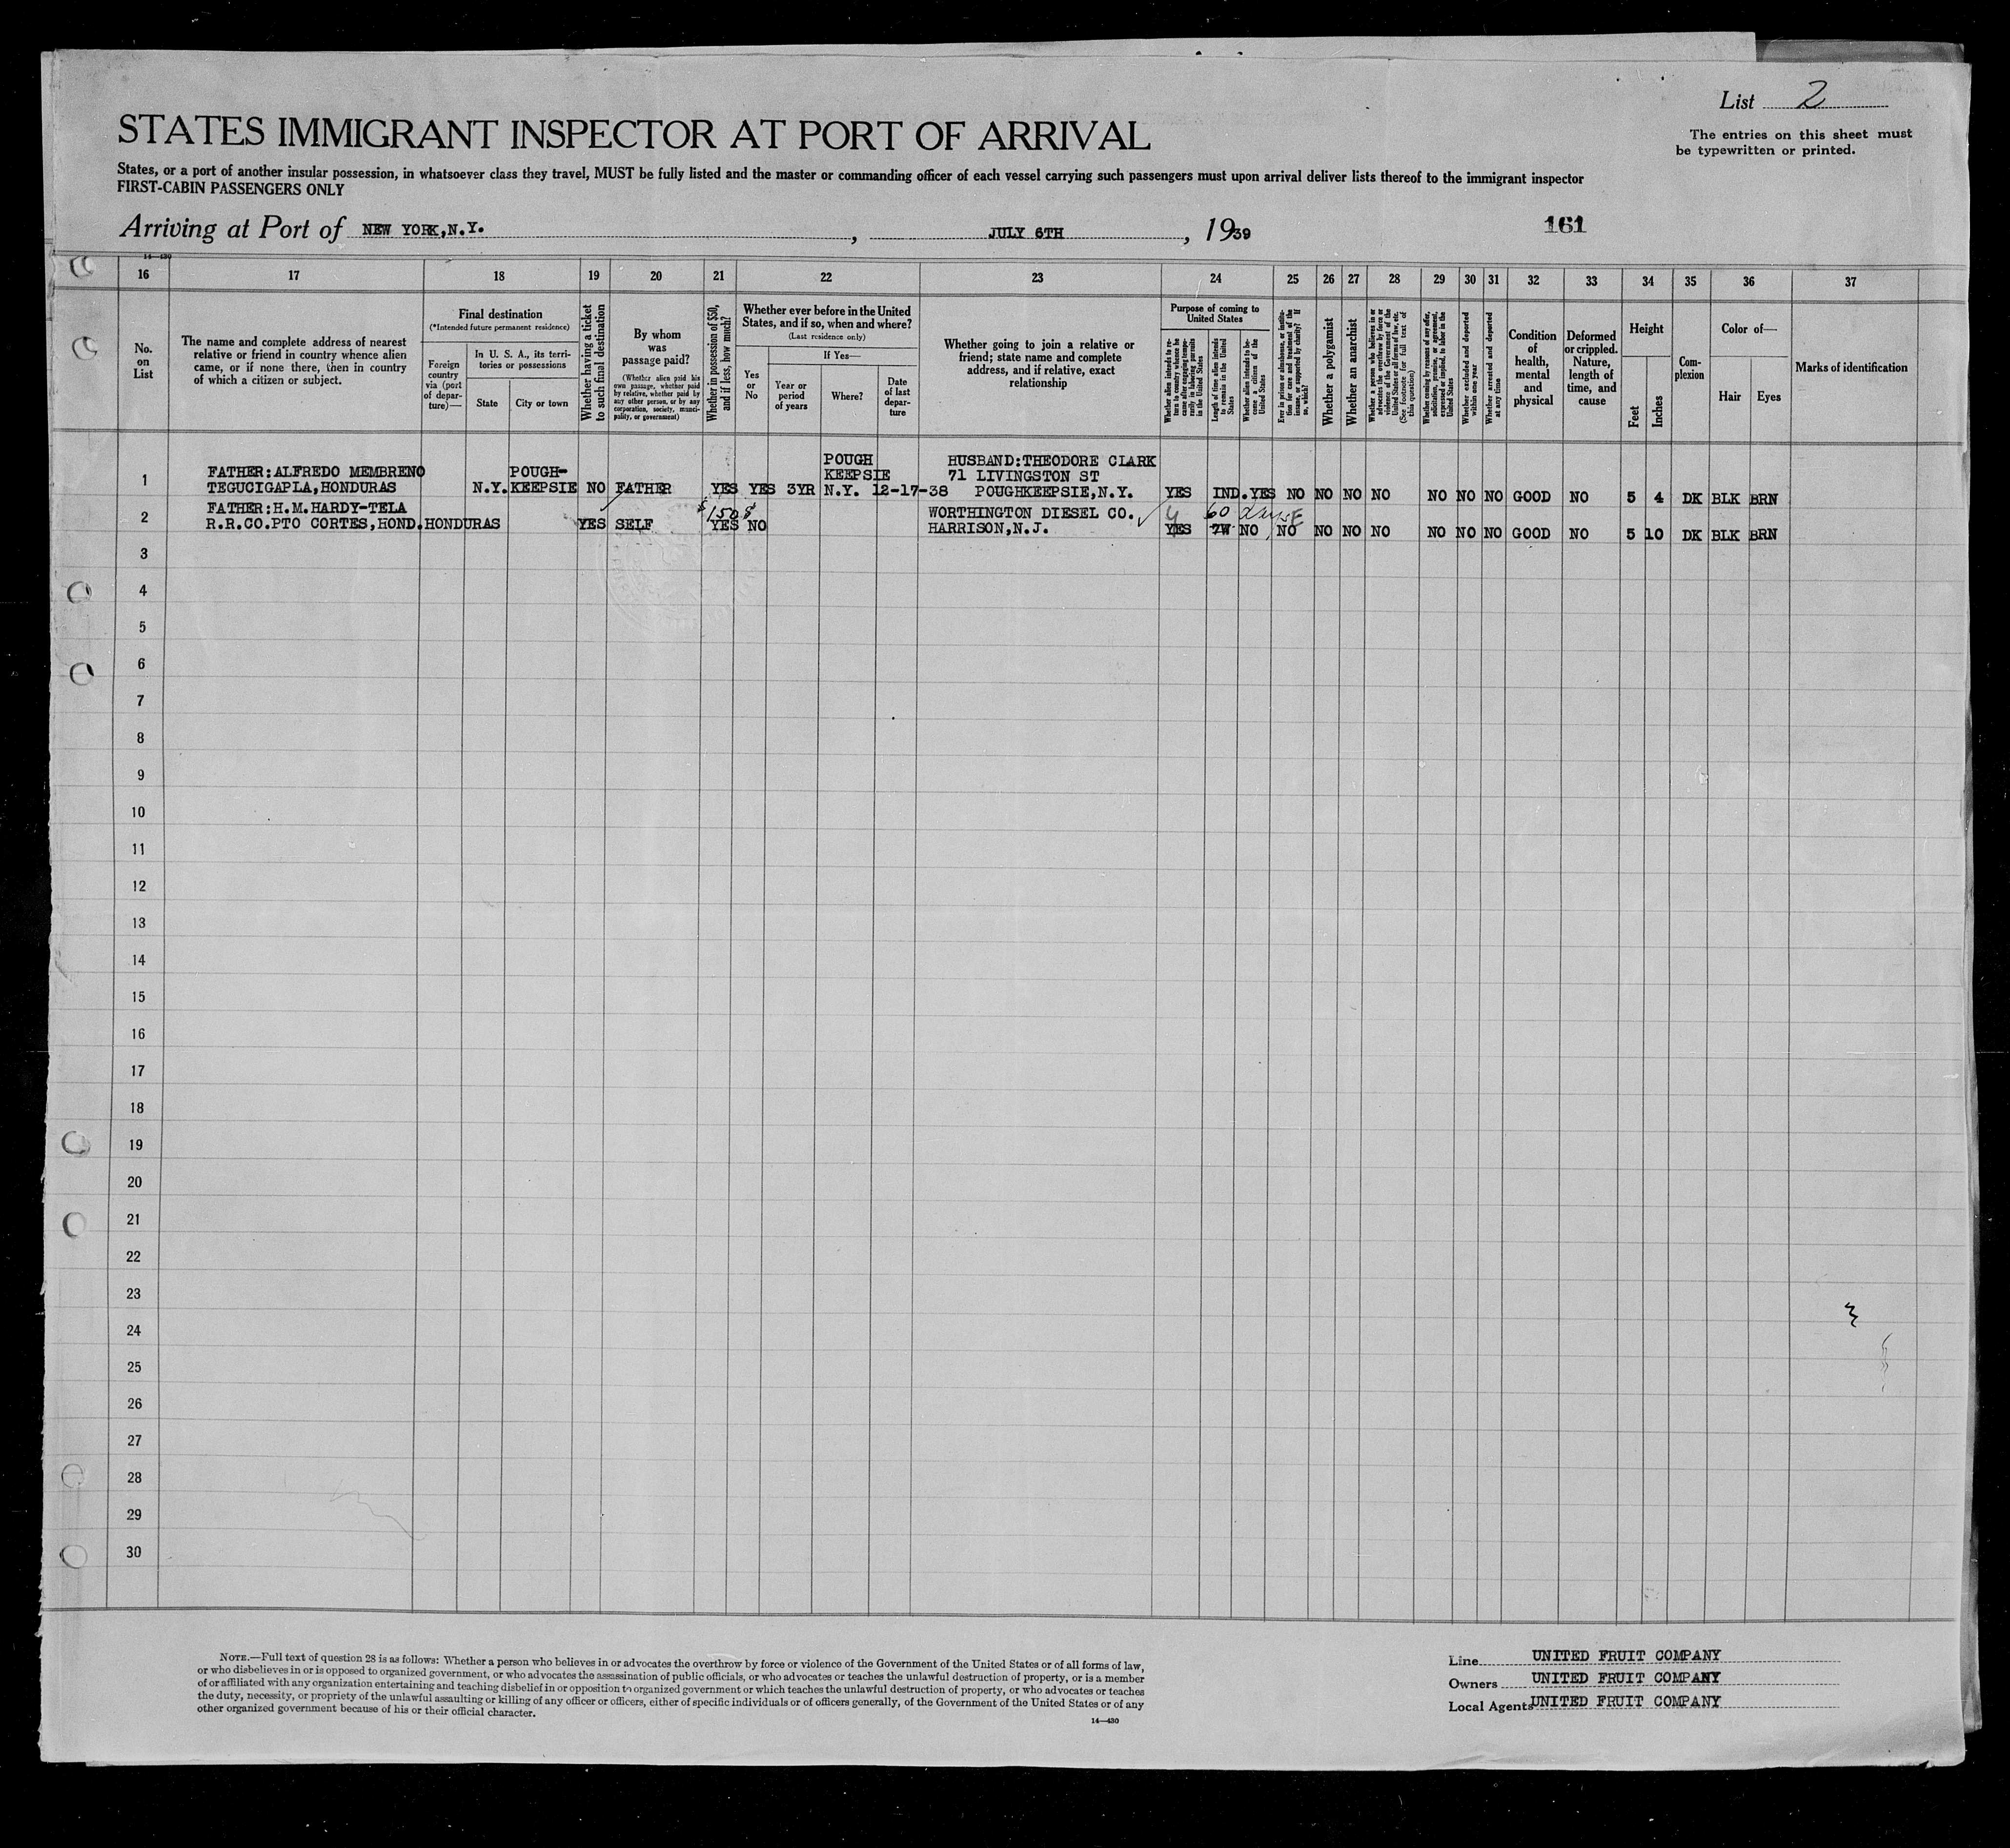 List 2
STATES IMMIGRANT INSPECTOR AT PORT OF ARRIVAL
The entries on this sheet must
be typewritten or printed.
States, or a port of another insular possession, in whatsoever class they travel, MUST be fully listed and the master or commanding officer of each vessel carrying such passengers must upon arrival deliver lists thereof to the immigrant inspector
FIRST-CABIN PASSENGERS ONLY
Arriving at Port of NEW YORK, N.Y. , JULY 6TH , 1939
161
14—430
16 17 18 19 20 21 22 23 24 25 26 27 28 29 30 31 32 33 34 35 36 37
No.
on
List
The name and complete address of nearest
relative or friend in country whence alien
came, or if none there, then in country
of which a citizen or subject.
Final destination
(*Intended future permanent residence)
Foreign
country
via (port
of depar-
ture)—
In U. S. A., its terri-
tories or possessions
State
City or town
Whether having a ticket
to such final destination
By whom
was
passage paid?
(Whether alien paid his
own passage, whether paid
by relative, whether paid by
any other person, or by any
corporation, society, munici-
pality, or government)
Whether in possession of $50,
and if less, how much?
Whether ever before in the United
States, and if so, when and where?
(Last residence only)
Yes
or
No
If Yes—
Year or
period
of years
Where?
Date
of last
depar-
ture
Whether going to join a relative or
friend; state name and complete
address, and if relative, exact
relationship
Purpose of coming to
United States
Whether alien intends to re-
turn to country whence he
came after engaging tempo-
rarily in laboring pursuits
in the United States
Length of time alien intends
to remain in the United
States
Whether alien intends to be-
come a citizen of the
United States
Ever in prison or almshouse, or institu-
tion for care and treatment of the
insane, or supported by charity? If
so, which?
Whether a polygamist
Whether an anarchist
Whether a person who believes in or
advocates the overthrow by force or
violence of the Government of the
United States or all forms of law, etc.
(See footnote for full text of
this question)
Whether coming by reasons of any offer,
solicitation, promise, or agreement,
expressed or implied, to labor in the
United States
Whether excluded and deported
within one year
Whether arrested and deported
at any time
Condition
of
health,
mental
and
physical
Deformed
or crippled.
Nature,
length of
time, and
cause
Height
Feet
Inches
Com-
plexion
Color of—
Hair
Eyes
Marks of identification
FATHER:ALFREDO MEMBRENO POUGH- POUGH KEEPSIE HUSBAND:THEODORE CLARK
71 LIVINGSTON ST
1 TEGUCIGAPLA,HONDURAS N.Y. KEEPSIE NO FATHER YES YES 3YR N.Y. 12-17-38 POUGHKEEPSIE,N.Y. YES IND. YES NO NO NO NO NO NO NO GOOD NO 5 4 DK BLK BRN
FATHER:H.M.HARDY-TELA $150 WORTHINGTON DIESEL CO. 60 days
2 R.R.CO.PTO CORTES,HOND. HONDURAS YES SELF YES NO HARRISON,N.J. YES 7W NO NO NO NO NO NO NO NO GOOD NO 5 10 DK BLK BRN
3
4
5
6
7
8
9
10
11
12
13
14
15
16
17
18
19
20
21
22
23
24
25
26
27
28
29
30
NOTE.—Full text of question 28 is as follows: Whether a person who believes in or advocates the overthrow by force or violence of the Government of the United States or of all forms of law,
or who disbelieves in or is opposed to organized government, or who advocates the assassination of public officials, or who advocates or teaches the unlawful destruction of property, or is a member
of or affiliated with any organization entertaining and teaching disbelief in or opposition to organized government or which teaches the unlawful destruction of property, or who advocates or teaches
the duty, necessity, or propriety of the unlawful assaulting or killing of any officer or officers, either of specific individuals or of officers generally, of the Government of the United States or of any
other organized government because of his or their official character.
14—430
Line UNITED FRUIT COMPANY
Owners UNITED FRUIT COMPANY
Local Agents UNITED FRUIT COMPANY